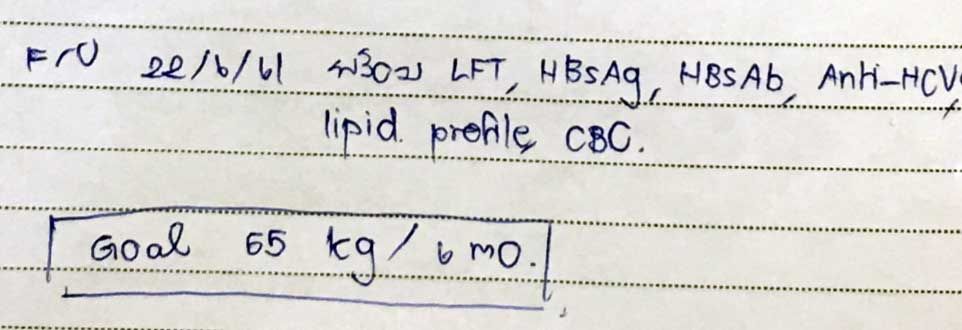 F/U 22/6/61 พร้อม LFT, HBsAg, HBsAb, Anti-HCV,
lipid profile, CBC.
Goal 65 kg/6 mo.